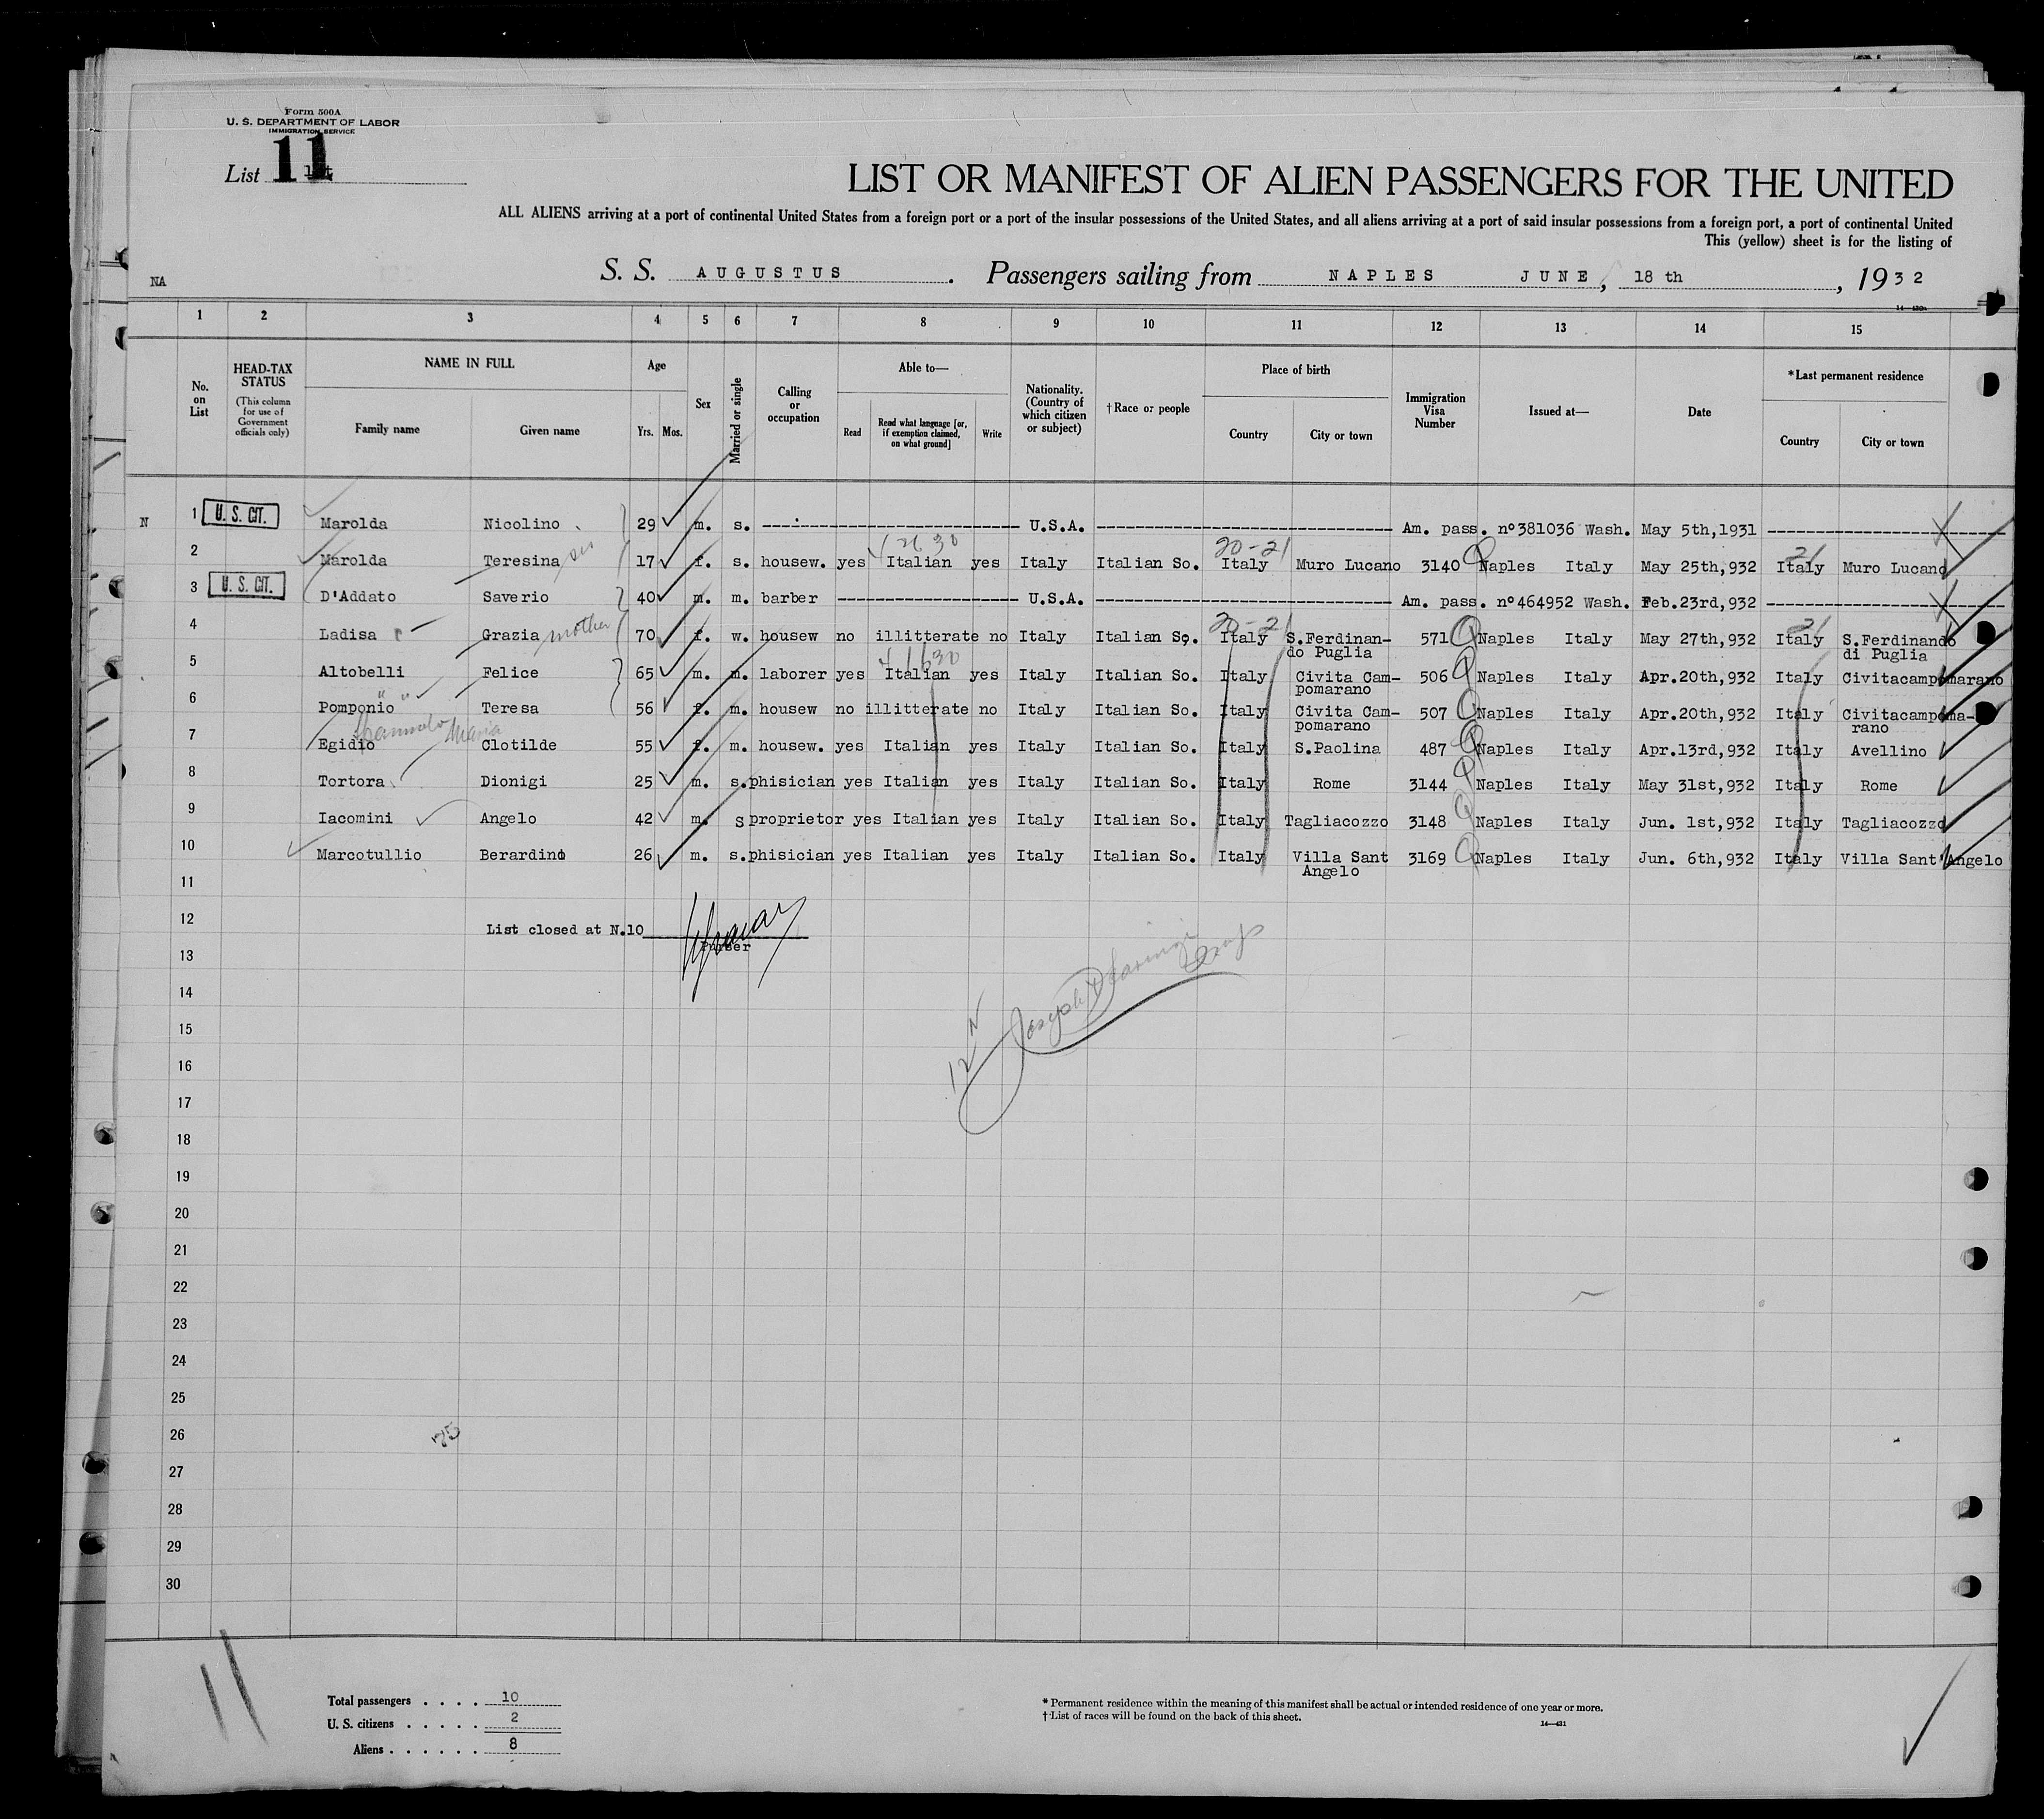 Form 500A
U. S. DEPARTMENT OF LABOR
IMMIGRATION SERVICE
List 11
LIST OR MANIFEST OF ALIEN PASSENGERS FOR THE UNITED
ALL ALIENS arriving at a port of continental United States from a foreign port or a port of the insular possessions of the United States, and all aliens arriving at a port of said insular possessions from a foreign port, a port of continental United
This (yellow) sheet is for the listing of
NA S. S. AUGUSTUS . Passengers sailing from NAPLES JUNE , 18 th , 1932
1 2 3 4 5 6 7 8 9 10 11 12 13 14 15
No. on List
HEAD-TAX STATUS
(This column for use of Government officials only)
NAME IN FULL
Family name Given name
Age
Yrs. Mos.
Sex
Married or single
Calling or occupation
Able to—
Read Read what language [or, if exemption claimed, on what ground] Write
Nationality. (Country of which citizen or subject)
†Race or people
Place of birth
Country City or town
Immigration Visa Number
Issued at—
Date
*Last permanent residence
Country City or town
N 1 U. S. CIT. Marolda Nicolino 29 m. s. U.S.A. Am. pass. nº381036 Wash. May 5th,1931
20-21 21
2 Marolda Teresina sis 17 f. s. housew. yes Italian yes Italy Italian So. Italy Muro Lucano 3140 Naples Italy May 25th,932 Italy Muro Lucano
3 U. S. CIT. D'Addato Saverio 40 m. m. barber U.S.A. Am. pass. nº464952 Wash. Feb.23rd,932
20-21 21
4 Ladisa Grazia mother 70 f. w. housew no illitterate no Italy Italian So. Italy S.Ferdinan- 571 Naples Italy May 27th,932 Italy S.Ferdinando
do Puglia di Puglia
5 Altobelli Felice 65 m. m. laborer yes Italian yes Italy Italian So. Italy Civita Cam- 506 Naples Italy Apr.20th,932 Italy Civitacampomarano
pomarano
6 Pomponio Teresa 56 f. m. housew no illitterate no Italy Italian So. Italy Civita Cam- 507 Naples Italy Apr.20th,932 Italy Civitacampoma-
pomarano rano
Maria
7 Egidio Clotilde 55 f. m. housew. yes Italian yes Italy Italian So. Italy S.Paolina 487 Naples Italy Apr.13rd,932 Italy Avellino
8 Tortora Dionigi 25 m. s. phisician yes Italian yes Italy Italian So. Italy Rome 3144 Naples Italy May 31st,932 Italy Rome
9 Iacomini Angelo 42 m. s proprietor yes Italian yes Italy Italian So. Italy Tagliacozzo 3148 Naples Italy Jun. 1st,932 Italy Tagliacozzo
10 Marcotullio Berardino 26 m. s. phisician yes Italian yes Italy Italian So. Italy Villa Sant 3169 Naples Italy Jun. 6th,932 Italy Villa Sant'Angelo
Angelo
11
12
List closed at N.10
Purser
13
14
15
16
17
18
19
20
21
22
23
24
25
26
27
28
29
30
11
Total passengers . . . . 10
U. S. citizens . . . . . 2
Aliens . . . . . . 8
* Permanent residence within the meaning of this manifest shall be actual or intended residence of one year or more.
† List of races will be found on the back of this sheet.
14—431